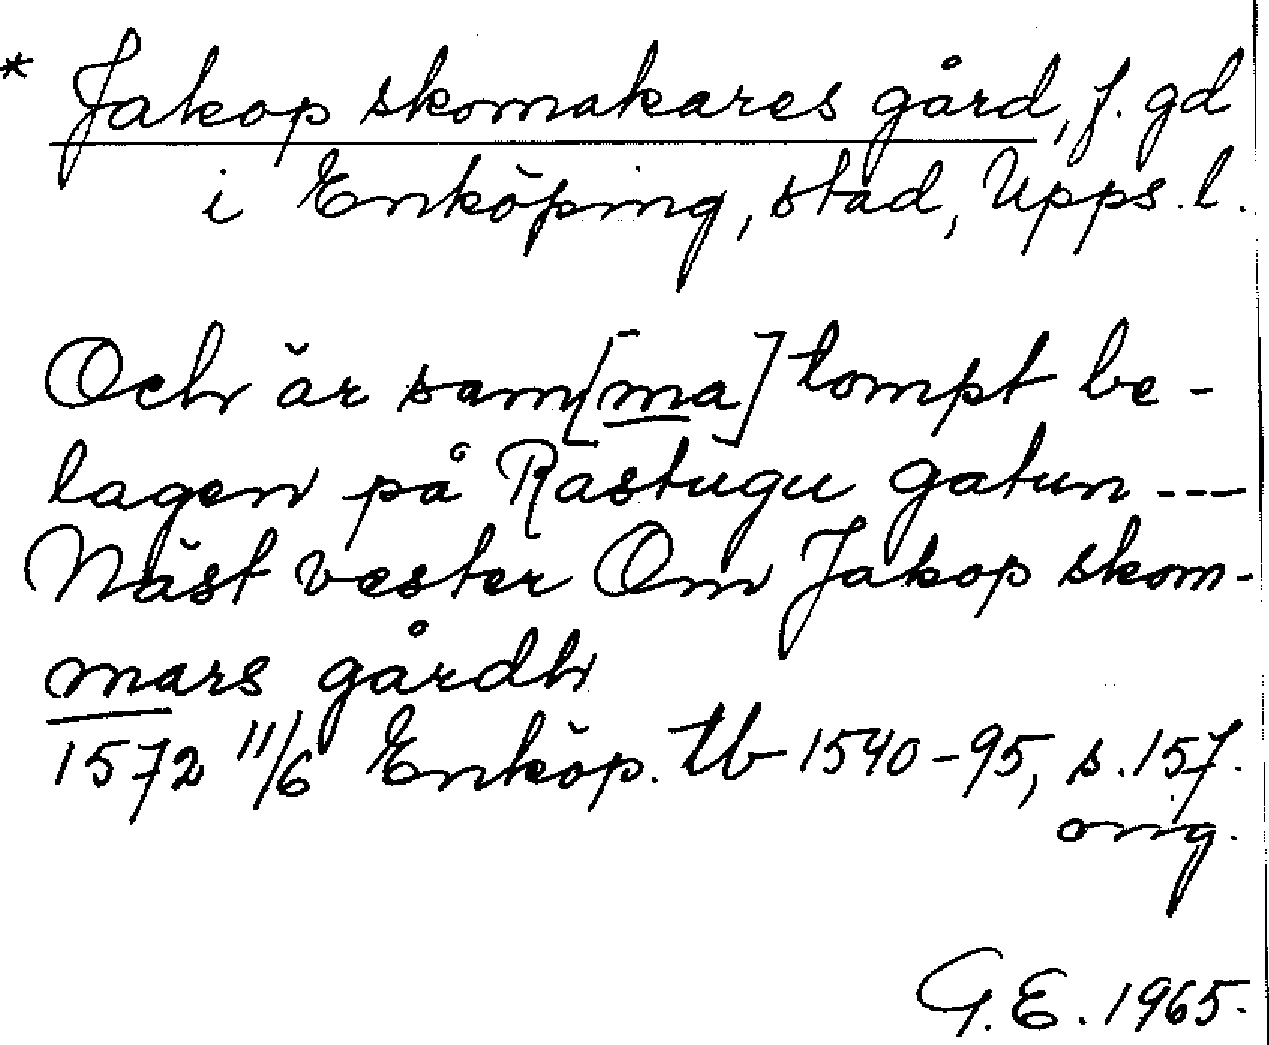 * Jakop skomakares gård, f. gd
i Enköping, stad, Upps. l.
Och är sam[ma] tompt be-
lagen på Rastugu gatun ---
Näst vester Om Jakop skom-
mars gårdh
1572 11/6 Enköp. tb 1540-95, s. 157.
orig.
G.E. 1965.